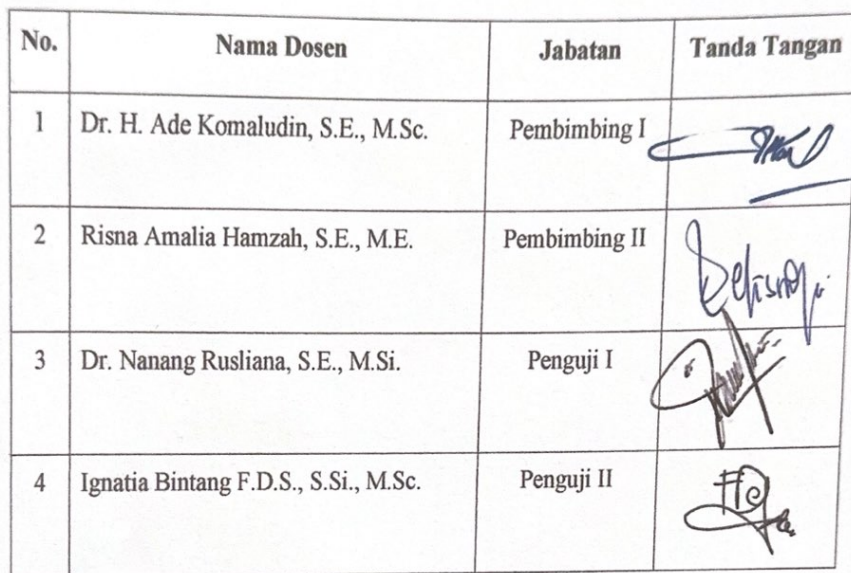 No. Nama Dosen Jabatan Tanda Tangan
1 Dr. H. Ade Komaludin, S.E., M.Sc. Pembimbing I
2 Risna Amalia Hamzah, S.E., M.E. Pembimbing II
3 Dr. Nanang Rusliana, S.E., M.Si. Penguji I
4 Ignatia Bintang F.D.S., S.Si., M.Sc. Penguji II